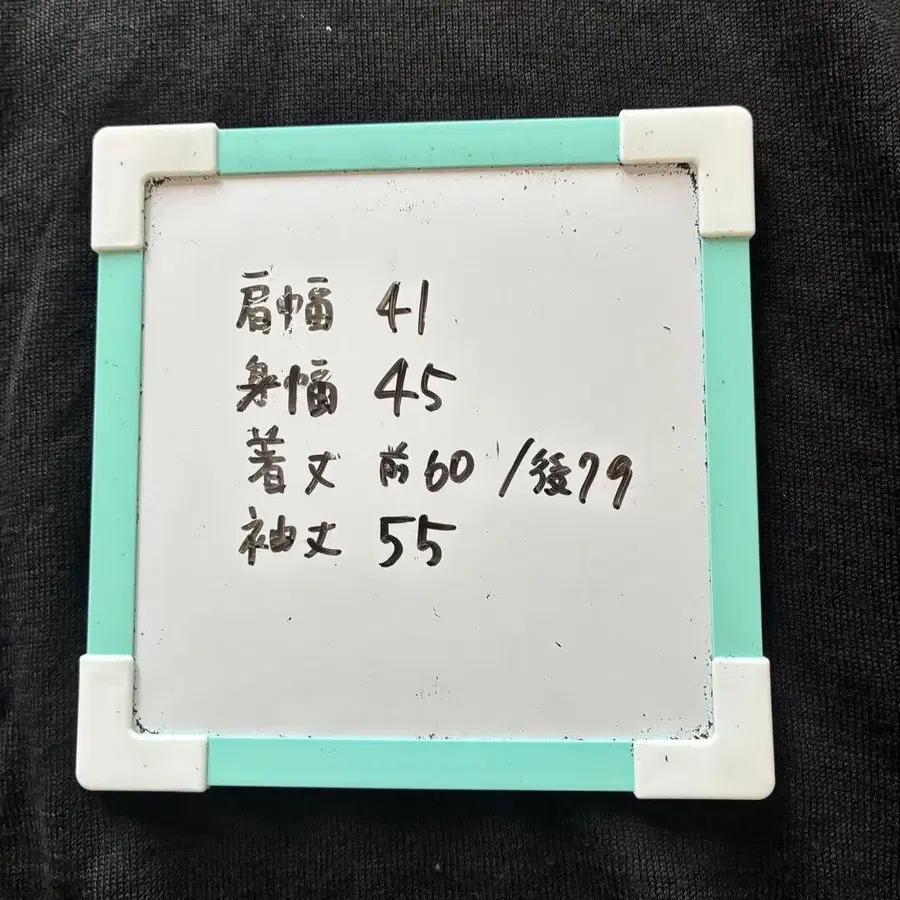 肩幅 41
身幅 45
着丈 前60 /後79
袖丈 55